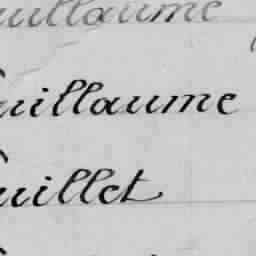 uillaume
uillaume
uillet